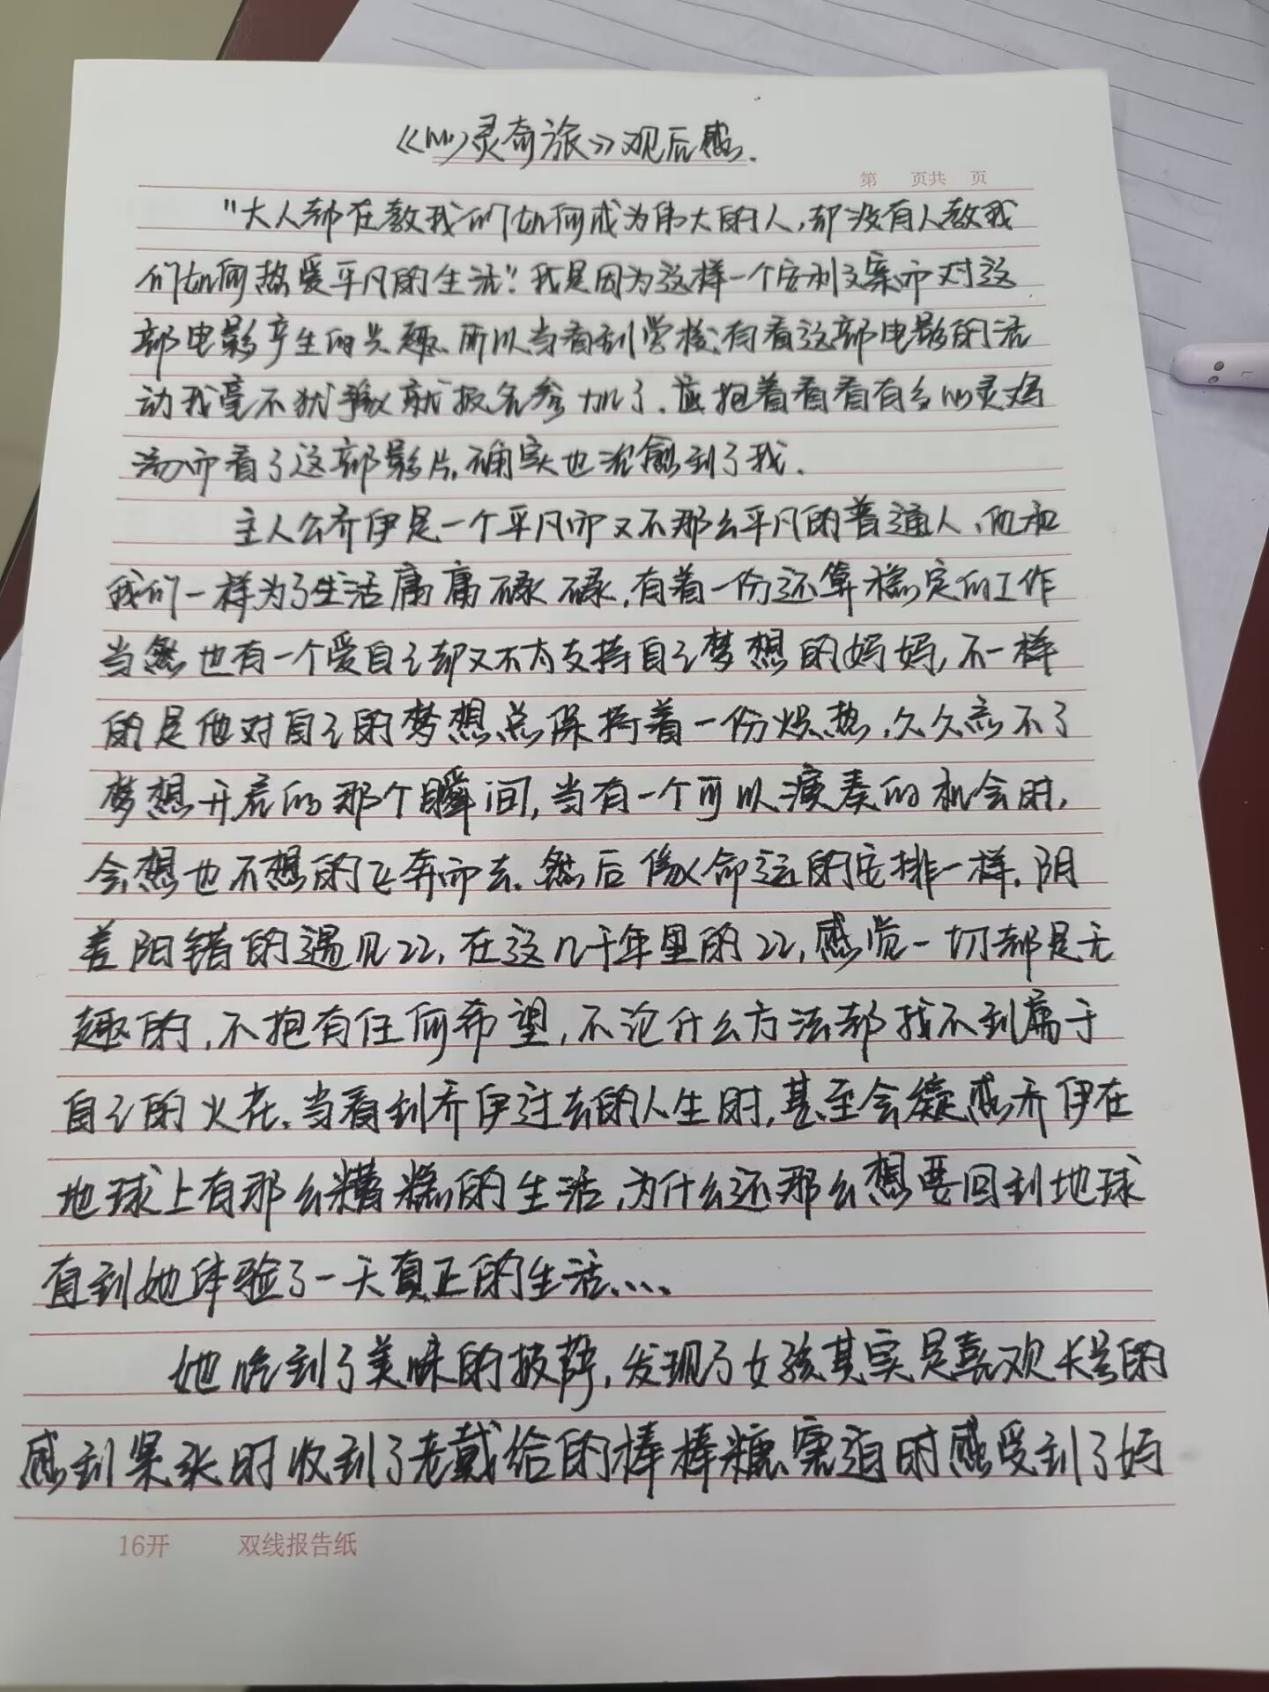 《心灵奇旅》观后感.
第 页共 页
"大人都在教我们如何成为伟大的人,却没有人教我
们如何热爱平凡的生活".我是因为这样一个安利文案而对这
部电影产生的兴趣.所以当看到学校有看这部电影的活
动我毫不犹豫就报名参加了.抱着看看有多心灵鸡
汤而看了这部影片,确实也治愈到了我.
主人公乔伊是一个平凡而又不那么平凡的普通人,他和
我们一样为了生活庸庸碌碌,有着一份还算稳定的工作
当然也有一个爱自己却又不太支持自己梦想的妈妈,不一样
的是他对自己的梦想总保持着一份炽热,久久忘不了
梦想开启的那个瞬间,当有一个可以演奏的机会时,
会想也不想的飞奔而去.然后像命运的安排一样.阴
差阳错的遇见22,在这几千年里的22,感觉一切都是无
趣的,不抱有任何希望,不论什么方法都找不到属于
自己的火花.当看到乔伊过去的人生时,甚至会疑惑乔伊在
地球上有那么糟糕的生活,为什么还那么想要回到地球
直到她体验了一天真正的生活....
她吃到了美味的披萨,发现了女孩其实是喜欢长号的
感到紧张时收到了老戴给的棒棒糖窘迫时感受到了妈
16开 双线报告纸